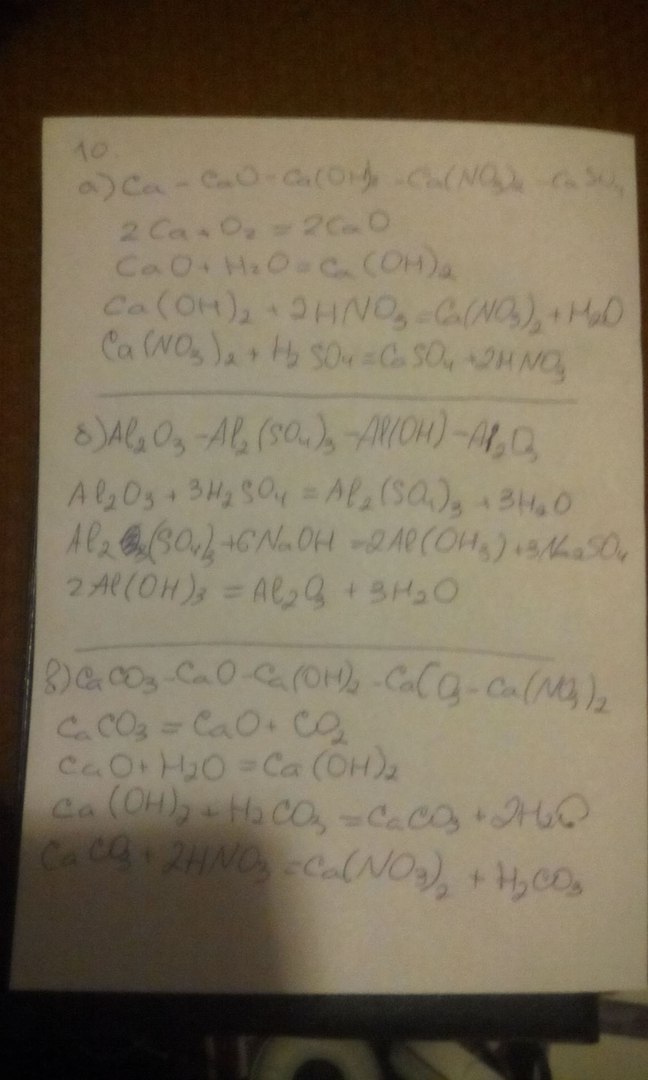 10.
а) Ca - CaO - Ca(OH)₂ - Ca(NO₃)₂ - CaSO₄
2Ca + O₂ = 2CaO
CaO + H₂O = Ca(OH)₂
Ca(OH)₂ + 2HNO₃ = Ca(NO₃)₂ + H₂O
Ca(NO₃)₂ + H₂SO₄ = CaSO₄ + 2HNO₃
б) Al₂O₃ - Al₂(SO₄)₃ - Al(OH) - Al₂O₃
Al₂O₃ + 3H₂SO₄ = Al₂(SO₄)₃ + 3H₂O
Al₂(SO₄)₃ + 6NaOH = 2Al(OH₃) + 3Na₂SO₄
2Al(OH)₃ = Al₂O₃ + 3H₂O
в) CaCO₃ - CaO - Ca(OH)₂ - CaCO₃ - Ca(NO₃)₂
CaCO₃ = CaO + CO₂
CaO + H₂O = Ca(OH)₂
Ca(OH)₂ + H₂CO₃ = CaCO₃ + 2H₂O
CaCO₃ + 2HNO₃ = Ca(NO₃)₂ + H₂CO₃